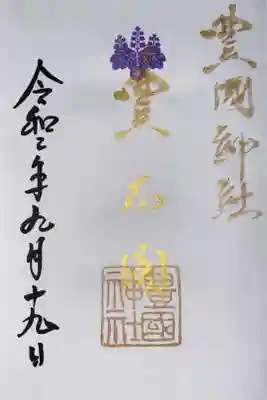 豊國神社
豊
豊國神社
令和二年九月十九日